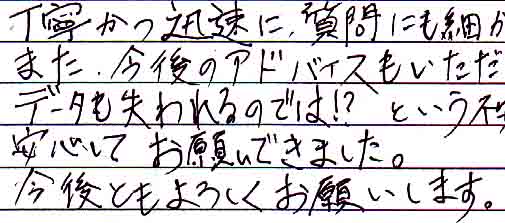 丁寧かつ迅速に、質問にも細か
また、今後のアドバイスもいただ
データも失われるのでは!? という不
安心して お願いできました。
今後ともよろしくお願いします。